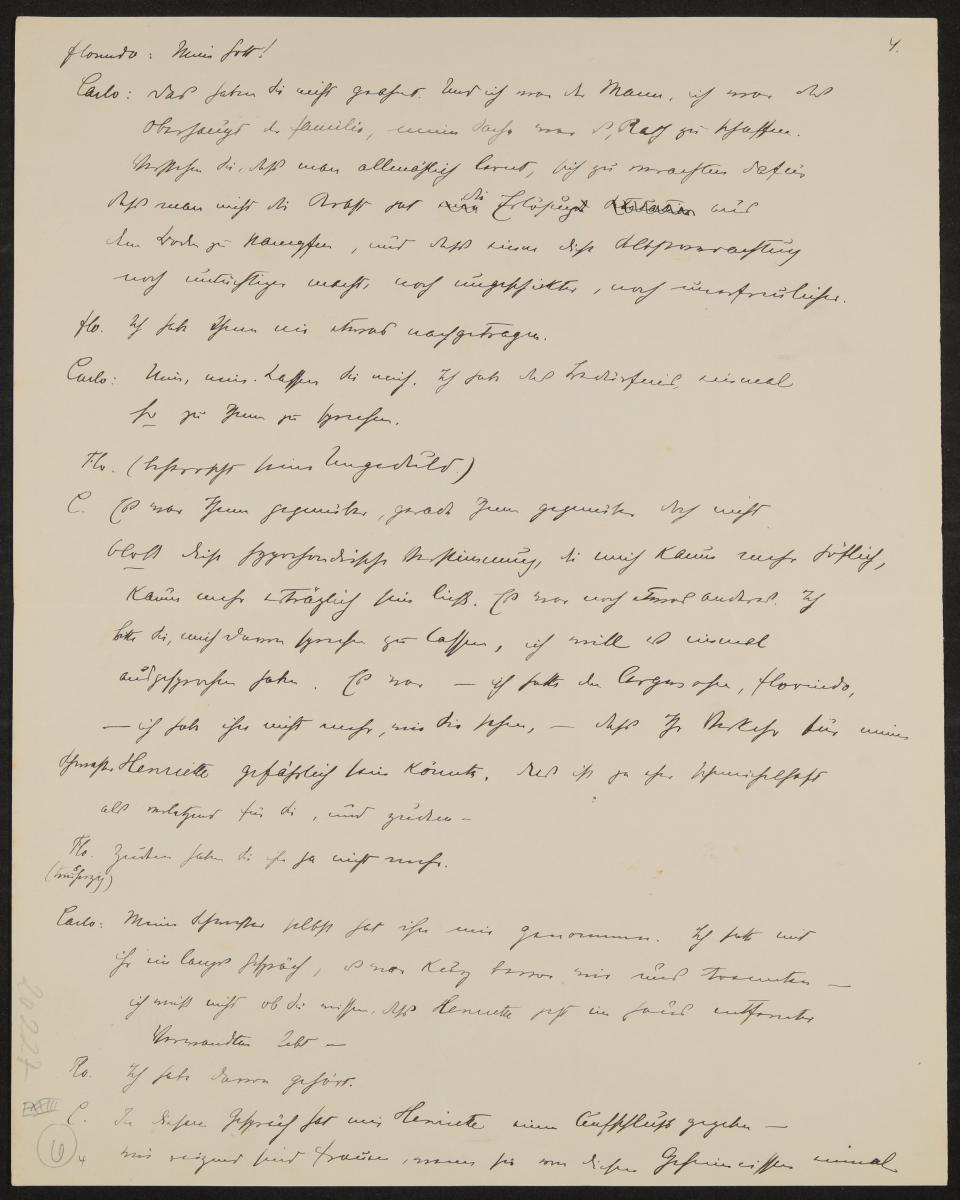 4.
Florindo: Mein Gott!
Carlo: Das haben Sie nicht geahnt. Und ich war der Mann, ich war das
Oberhaupt der Familie, meine Sache war es, Rath zu schaffen.
Verstehen Sie, dass man allmählich lernt, sich zu verachten dafür
dass man nicht die Kraft hat die Erlösung aus
dem Boden zu stampfen, und dass einen diese Selbstverachtung
noch untüchtiger macht, noch ungeschickter, noch unerfreulicher.
Flo. Ich habe Ihnen nie etwas nachgetragen.
Carlo: Nein, nein. Lassen Sie mich. Ich habe das Bedürfnis, einmal
so zu Ihnen zu sprechen.
Flo. (beherrscht seine Ungeduld.)
C. Es war Ihnen gegenüber, gerade Ihnen gegenüber doch nicht
bloss diese hypochondrische Verstimmung, die mich kaum mehr höflich,
kaum mehr erträglich sein liess. Es war noch etwas anderes. Ich
bitte Sie, mich davon sprechen zu lassen, ich will es einmal
ausgesprochen haben. Es war — ich hatte den Argwohn, Florindo,
— ich habe ihn nicht mehr, wie Sie sehen, — dass Ihr Verkehr für meine
Schwester Henriette gefährlich sein könnte. Das ist ja eher schmeichelhaft
als verletzend für Sie, und zudem —
Flo. Zudem haben Sie ihn ja nicht mehr.
(treuherzig)
Carlo: Meine Schwester selbst hat ihn mir genommen. Ich hatte mit
ihr ein langes Gespräch, es war kurz bevor wir uns trennten —
ich weiss nicht ob Sie wissen, dass Henriette jetzt im Haus entfernter
Verwandten lebt —
Flo. Ich habe davon gehört.
C. In diesem Gespräch hat mir Henriette einen Aufschluss gegeben —
wie reizend sind Frauen, wenn sie von diesen Geheimnissen einmal
20227
6
4